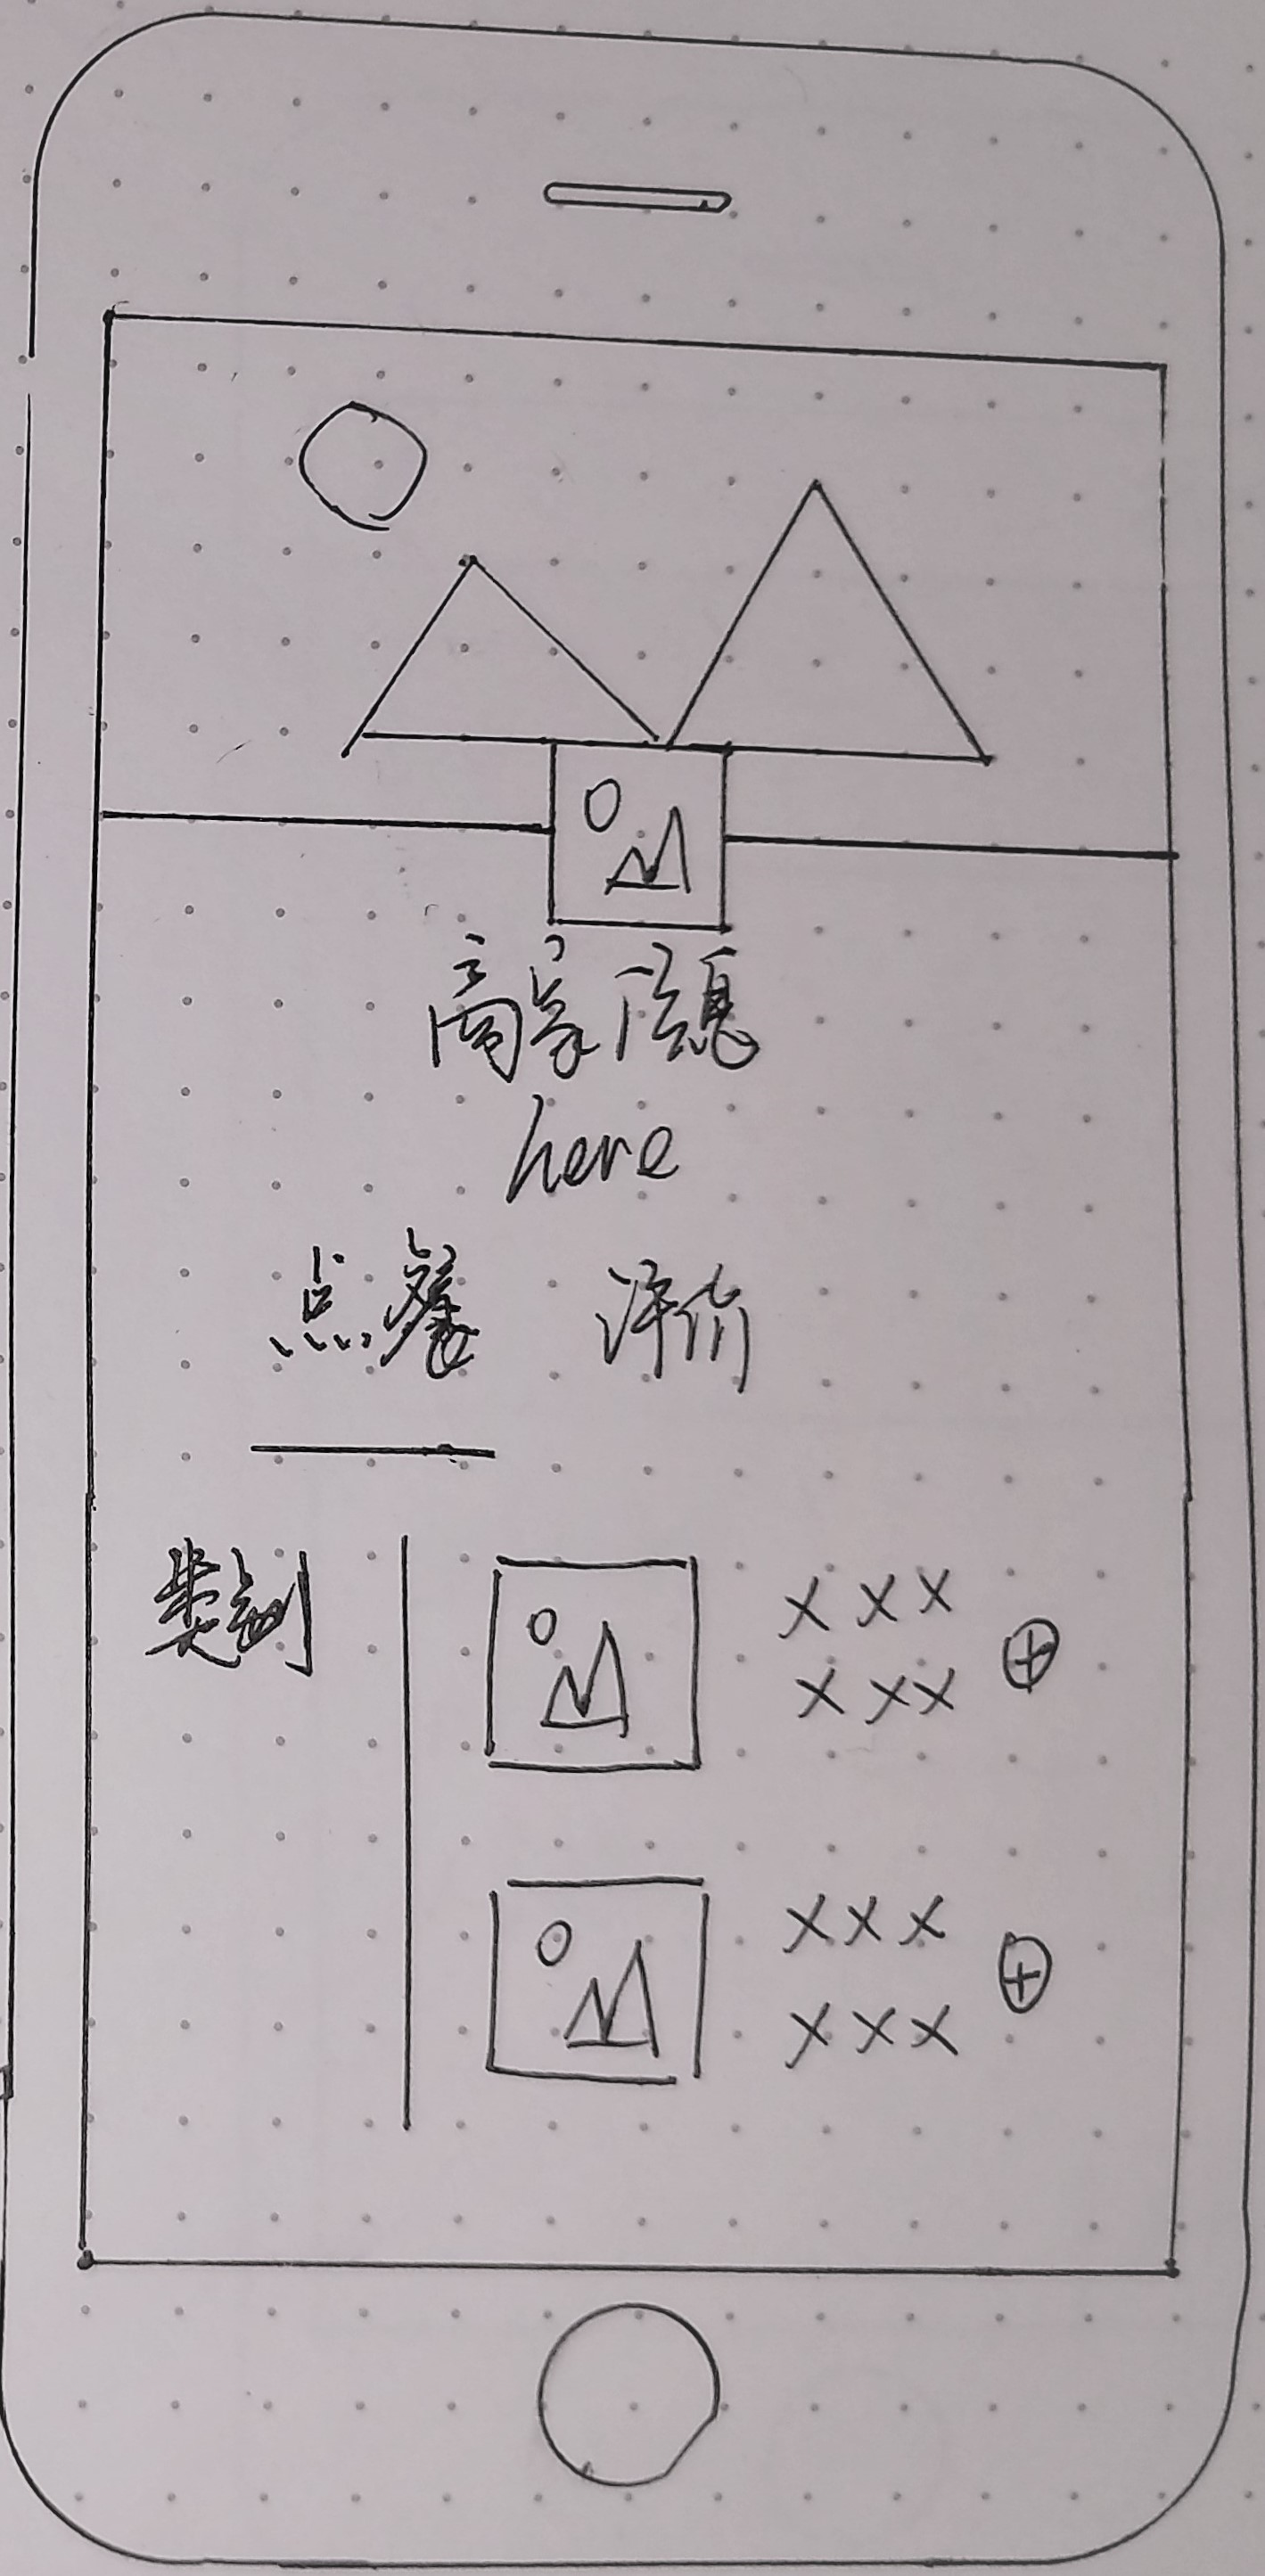 商家信息
here
点餐 评价
类别
X X X
X X X
X X X
X X X